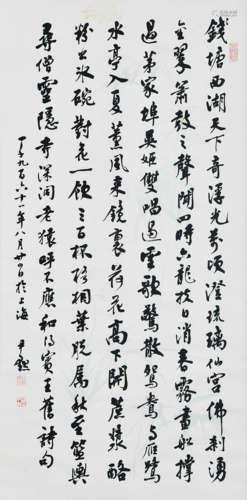 錢塘西湖天下奇浮光萬頃澄琉璃仙宮佛刹湧
金翠簫鼓之聲聞四時六龍扶日消春霧畫船撐
過茅家埠吳姬雙唱過雲歌驚散鴛鴦與雁鷺
水亭入夏薰風來鏡裏荷花高下開蔗漿酪
粉出冰碗對花一飲三百杯梧桐葉脫屬秋至籃輿
尋僧靈隱寺深洞老猿呼不應和得賓王舊詩句
一千九百六十一年八月廿日於上海